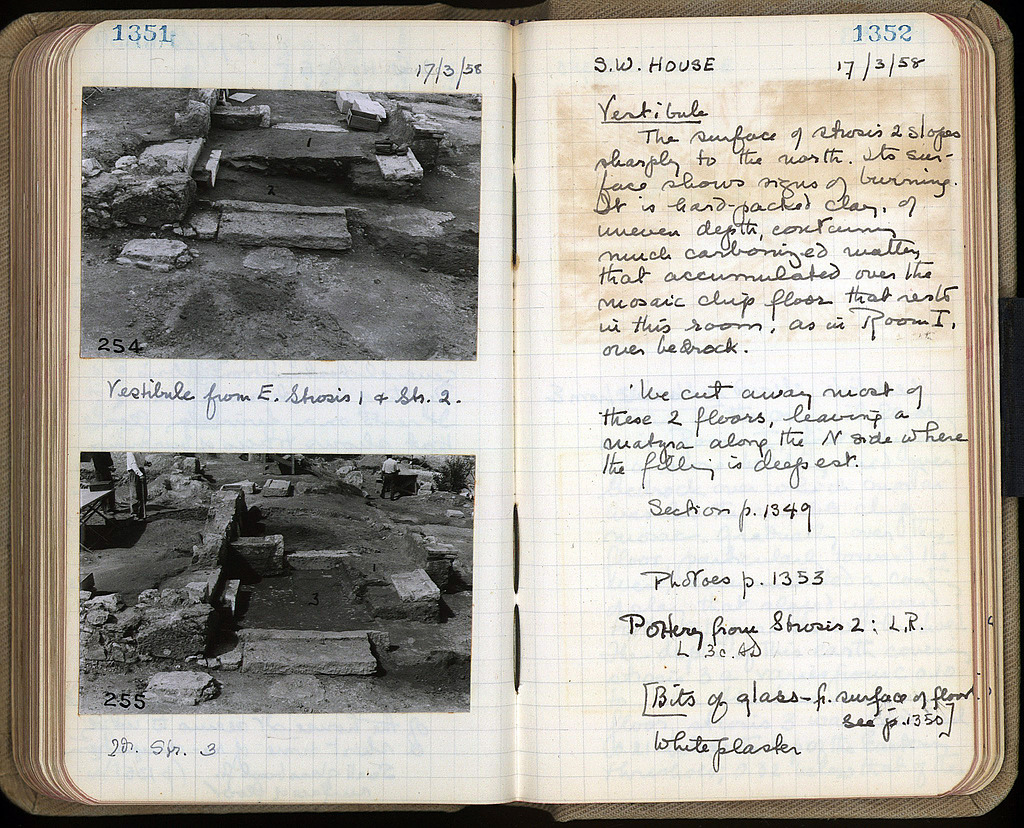 1351
17/3/58
1
2
254
Vestibule from E. Strosis 1 & Str. 2.
1
3
255
Id. Str. 3
1352
S.W. HOUSE 17/3/58
Vestibule
The surface of strosis 2 slopes
sharply to the north. Its sur-
face shows signs of burning.
It is hard-packed clay, of
uneven depth, containing
much carbonized matter,
that accumulated over the
mosaic chip floor that rests
in this room, as in Room I,
over bedrock.
We cut away most of
these 2 floors, leaving a
martyra along the N side where
the filling is deepest.
Section p. 1349
Photoes p. 1353
Pottery from Strosis 2: L.R.
L 3c. AD
[Bits of glass - fr. surface of floor
see p. 1350]
White plaster